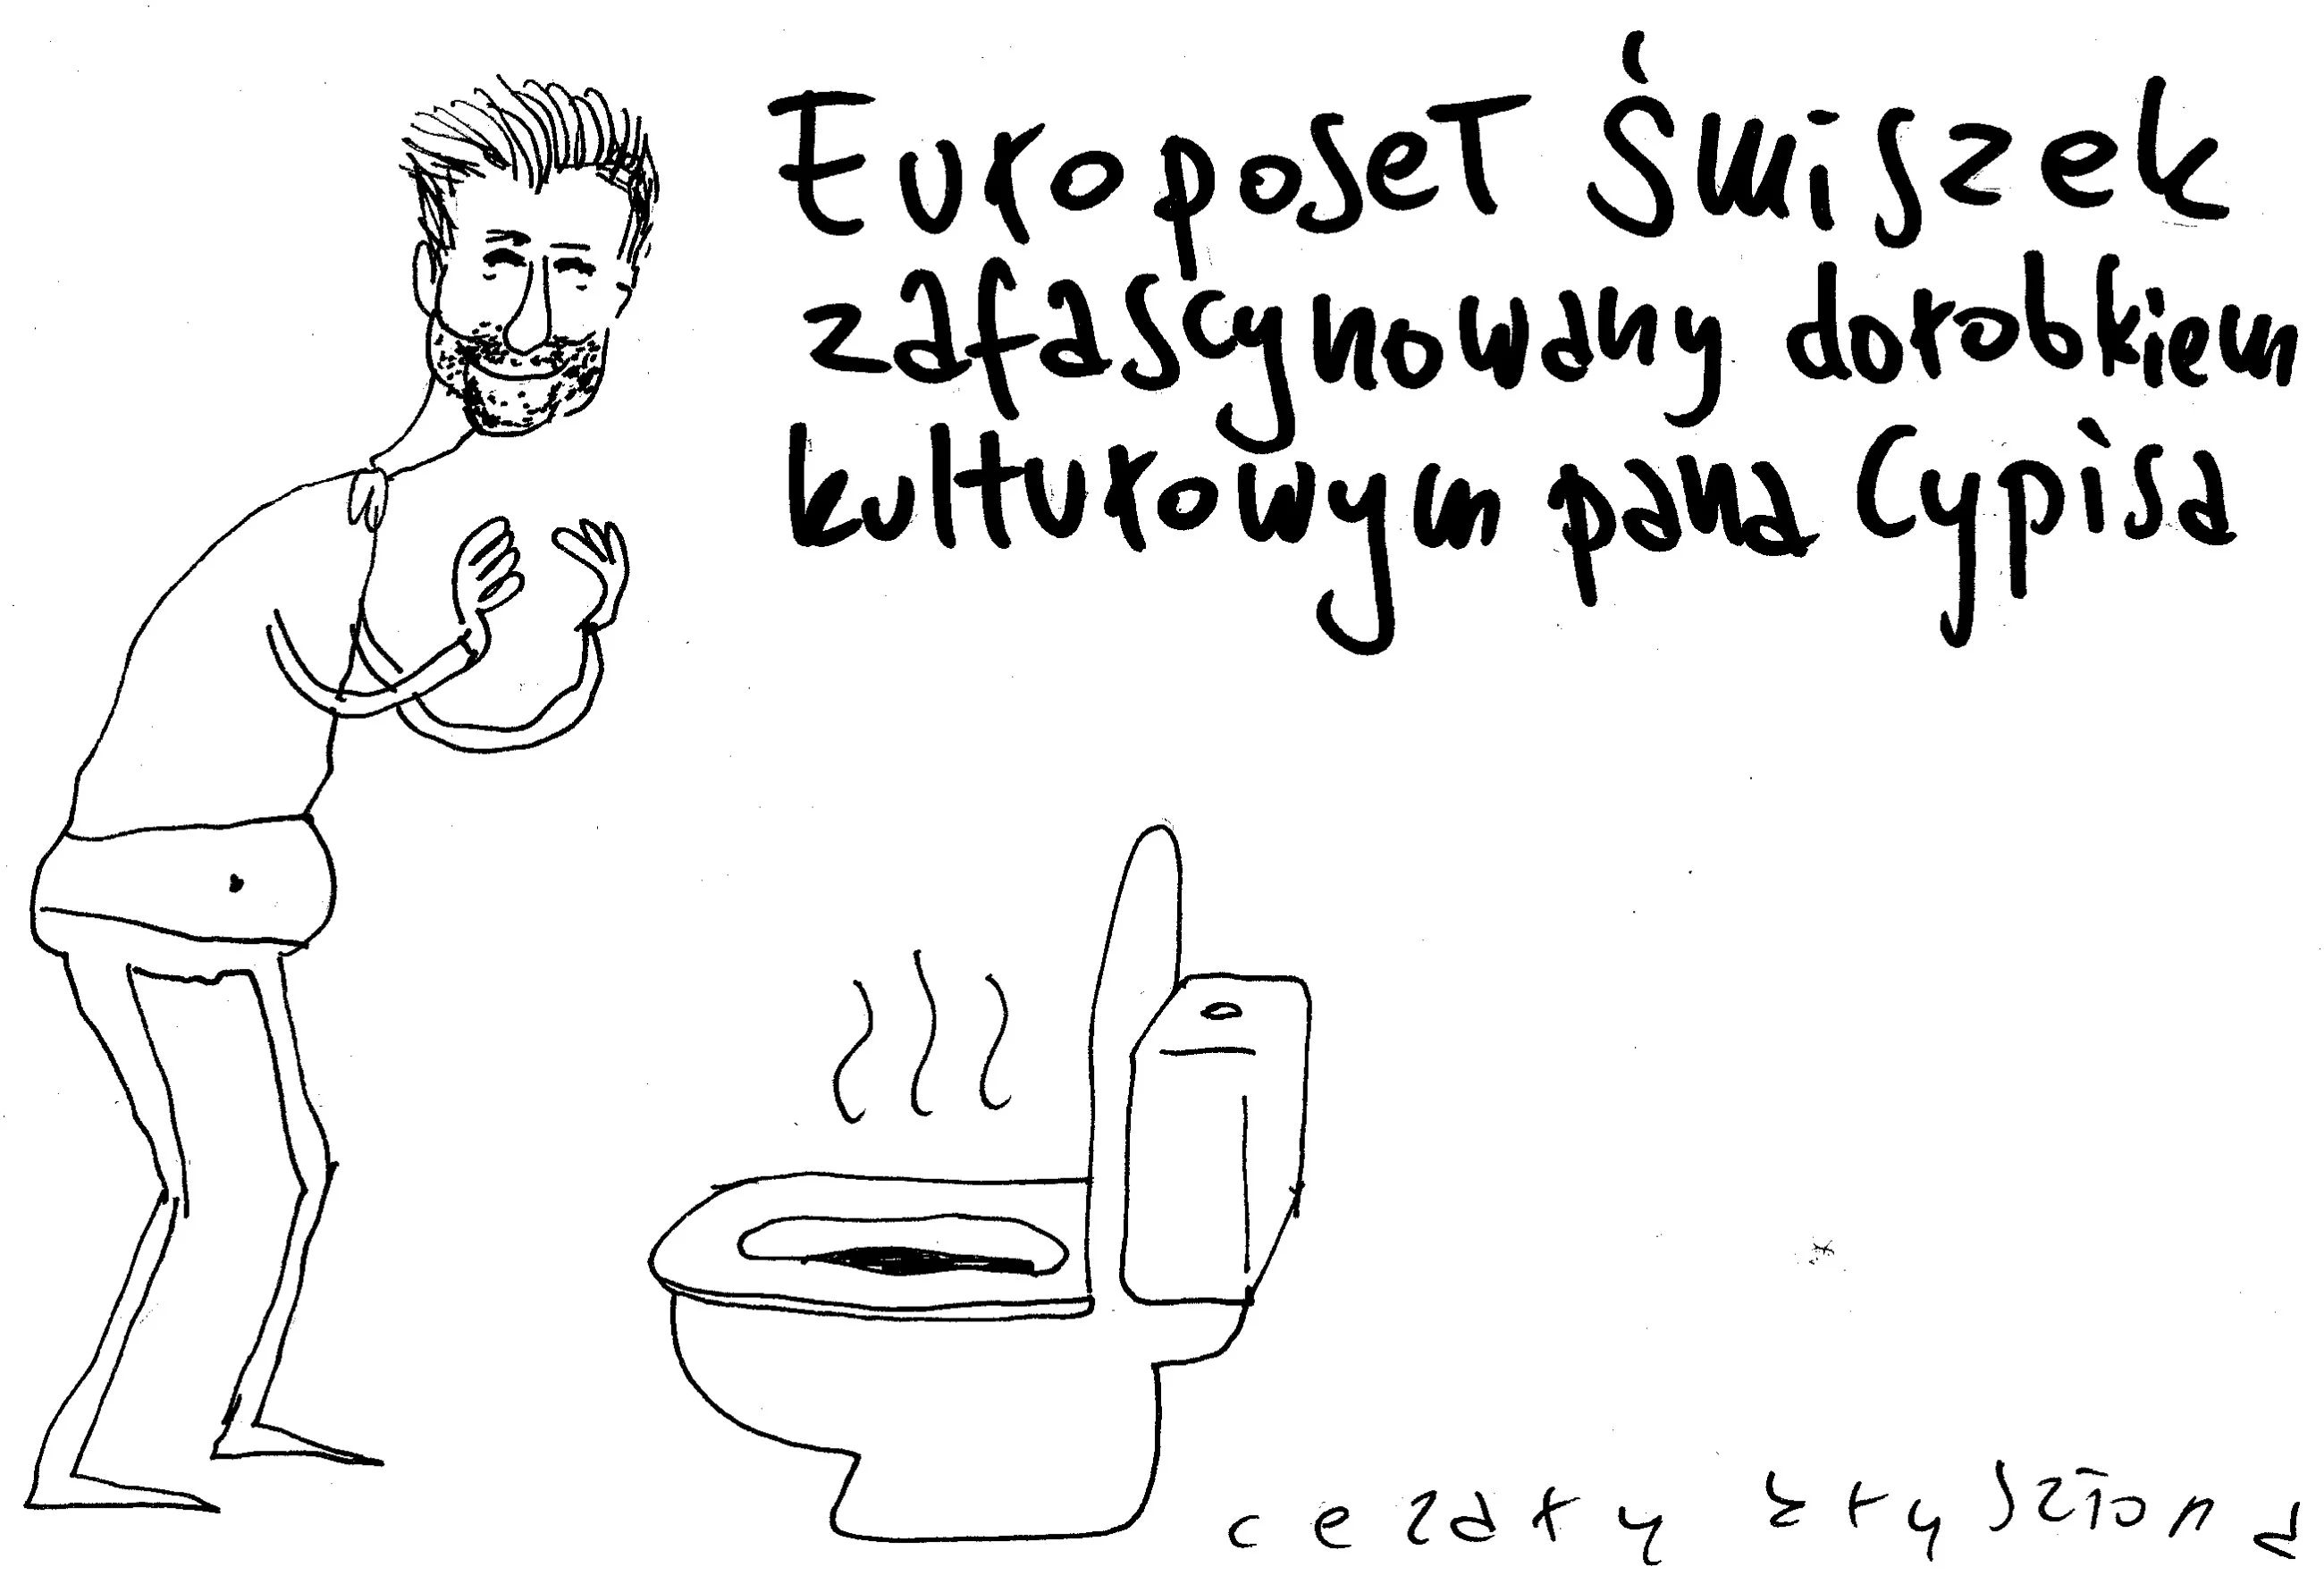 Euro poseł Śmiszek
zafascynowany dorobkiem
kulturowym pana Cypisa
cezary krysztopa